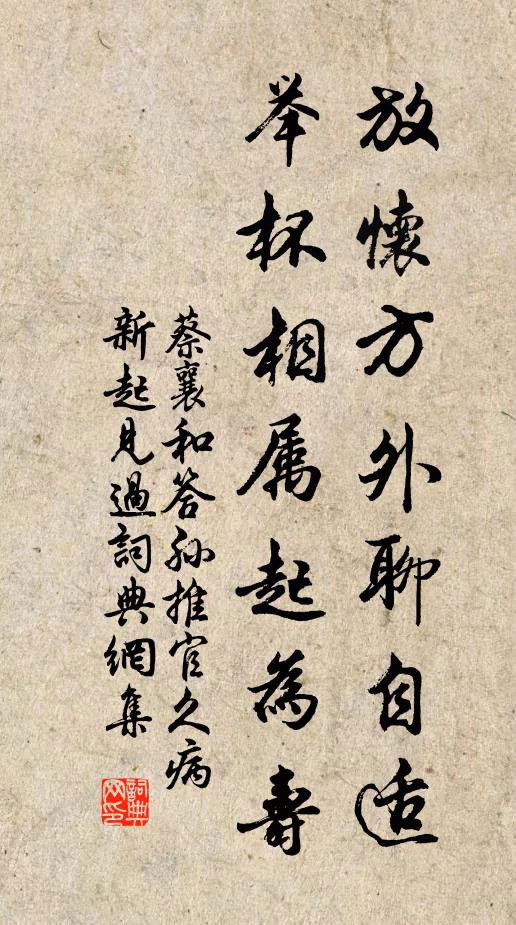 放懷方外聊自适
举杯相属起為壽
蔡襄和答孙推官久病
新起見過詞典網集
詞典网印